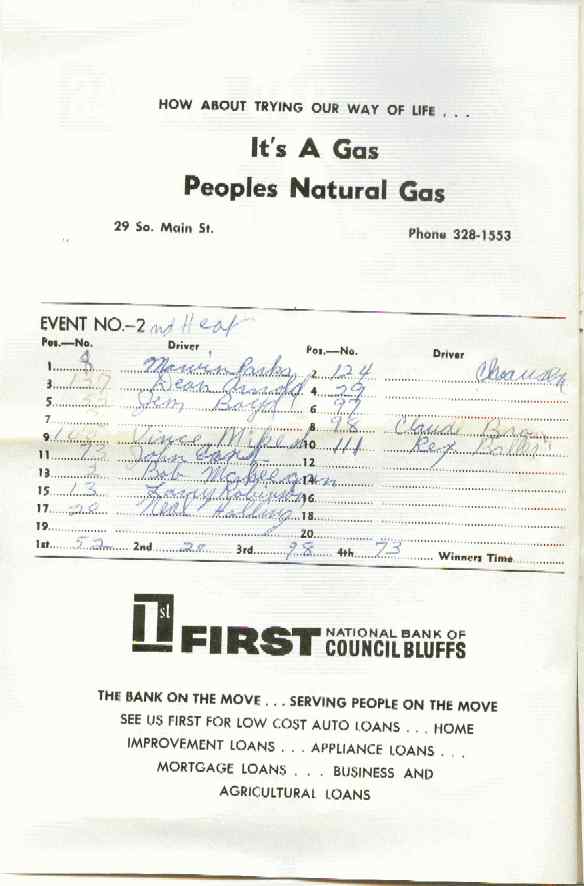 HOW ABOUT TRYING OUR WAY OF LIFE . . .
It's A Gas
Peoples Natural Gas
29 So. Main St.
Phone 328-1553
EVENT NO.–2 nd Heat
Pos.—No. Driver Pos.—No. Driver
1. 8 Marvin Parks 2 124
3 Dean Arnold 4 29
5 52 Jim Boyd 6
7 8 98 Claude
9 Vince 10 111 Rex
11 73 John 12
13 2 Bob 14
15 13 Larry Robinson 16
17 20 Neal 18
19 20
1st 52 2nd 20 3rd 98 4th 73 Winners Time
1st FIRST NATIONAL BANK OF
COUNCIL BLUFFS
THE BANK ON THE MOVE . . . SERVING PEOPLE ON THE MOVE
SEE US FIRST FOR LOW COST AUTO LOANS . . . HOME
IMPROVEMENT LOANS . . . APPLIANCE LOANS . . .
MORTGAGE LOANS . . . BUSINESS AND
AGRICULTURAL LOANS